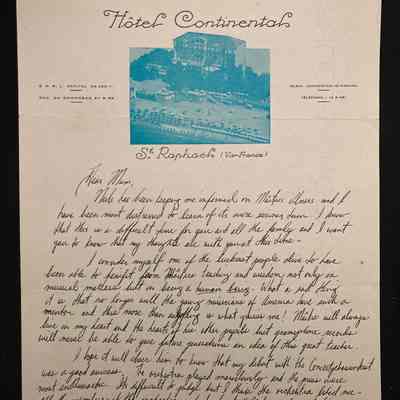 Hôtel Continental
St. Raphaël (Var-France)
Dear Mum,
has been keeping me informed on Maître's illness and I
have been most distressed to learn of its more serious turn. I know
that this is a difficult time for you and all the family and I want
you to know that my thoughts are with you at this time.
I consider myself one of the luckiest people alive to have
been able to benefit from Maître's teaching and wisdom, not only in
musical matters but in being a human being. What a sad thing
it is that no longer will the young musicians of America have such a
mentor and this more than anything is what grieves me! Maître will always
live in my heart and the hearts of his other pupils but gramophone records
will never be able to give future generations an idea of this great teacher.
I hope it will cheer him to know that my debut with the Concertgebouworkest
was a good success. The orchestra played marvelously and the press were
most enthusiastic. It's difficult to judge but I think the orchestra liked me -